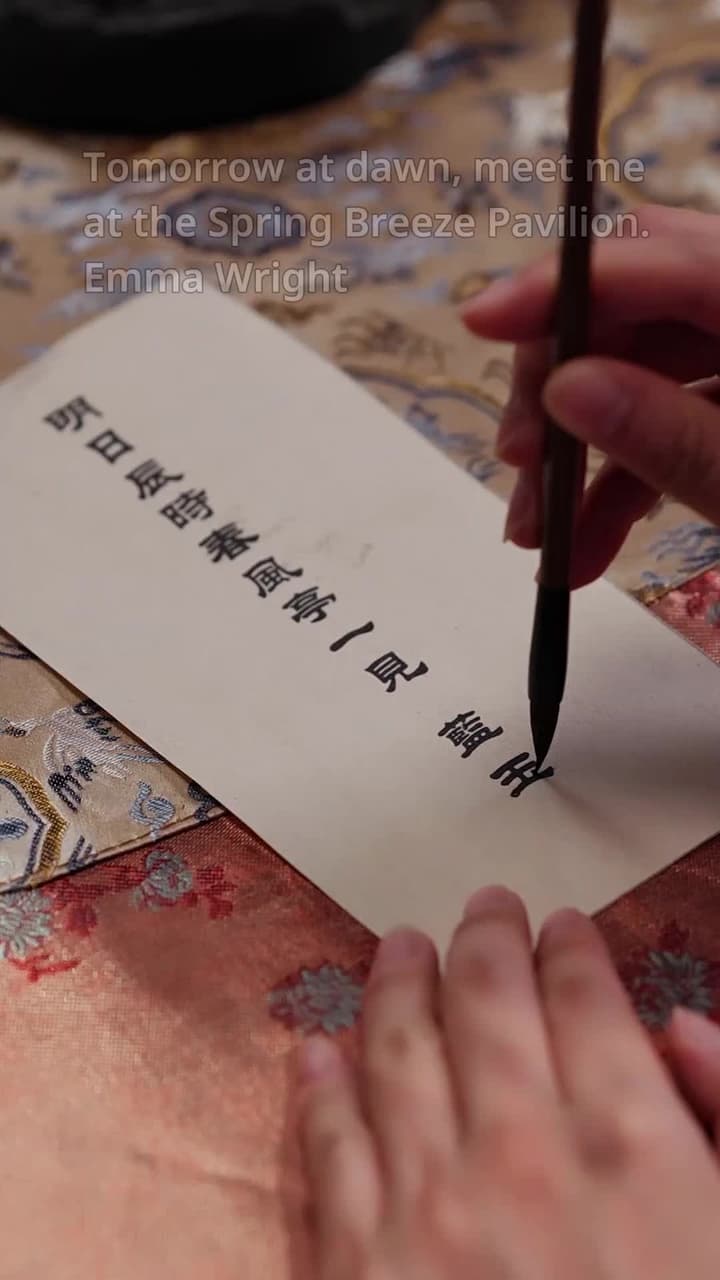 Tomorrow at dawn, meet me
at the Spring Breeze Pavilion.
Emma Wright
明日辰時春風亭一見
藍玉